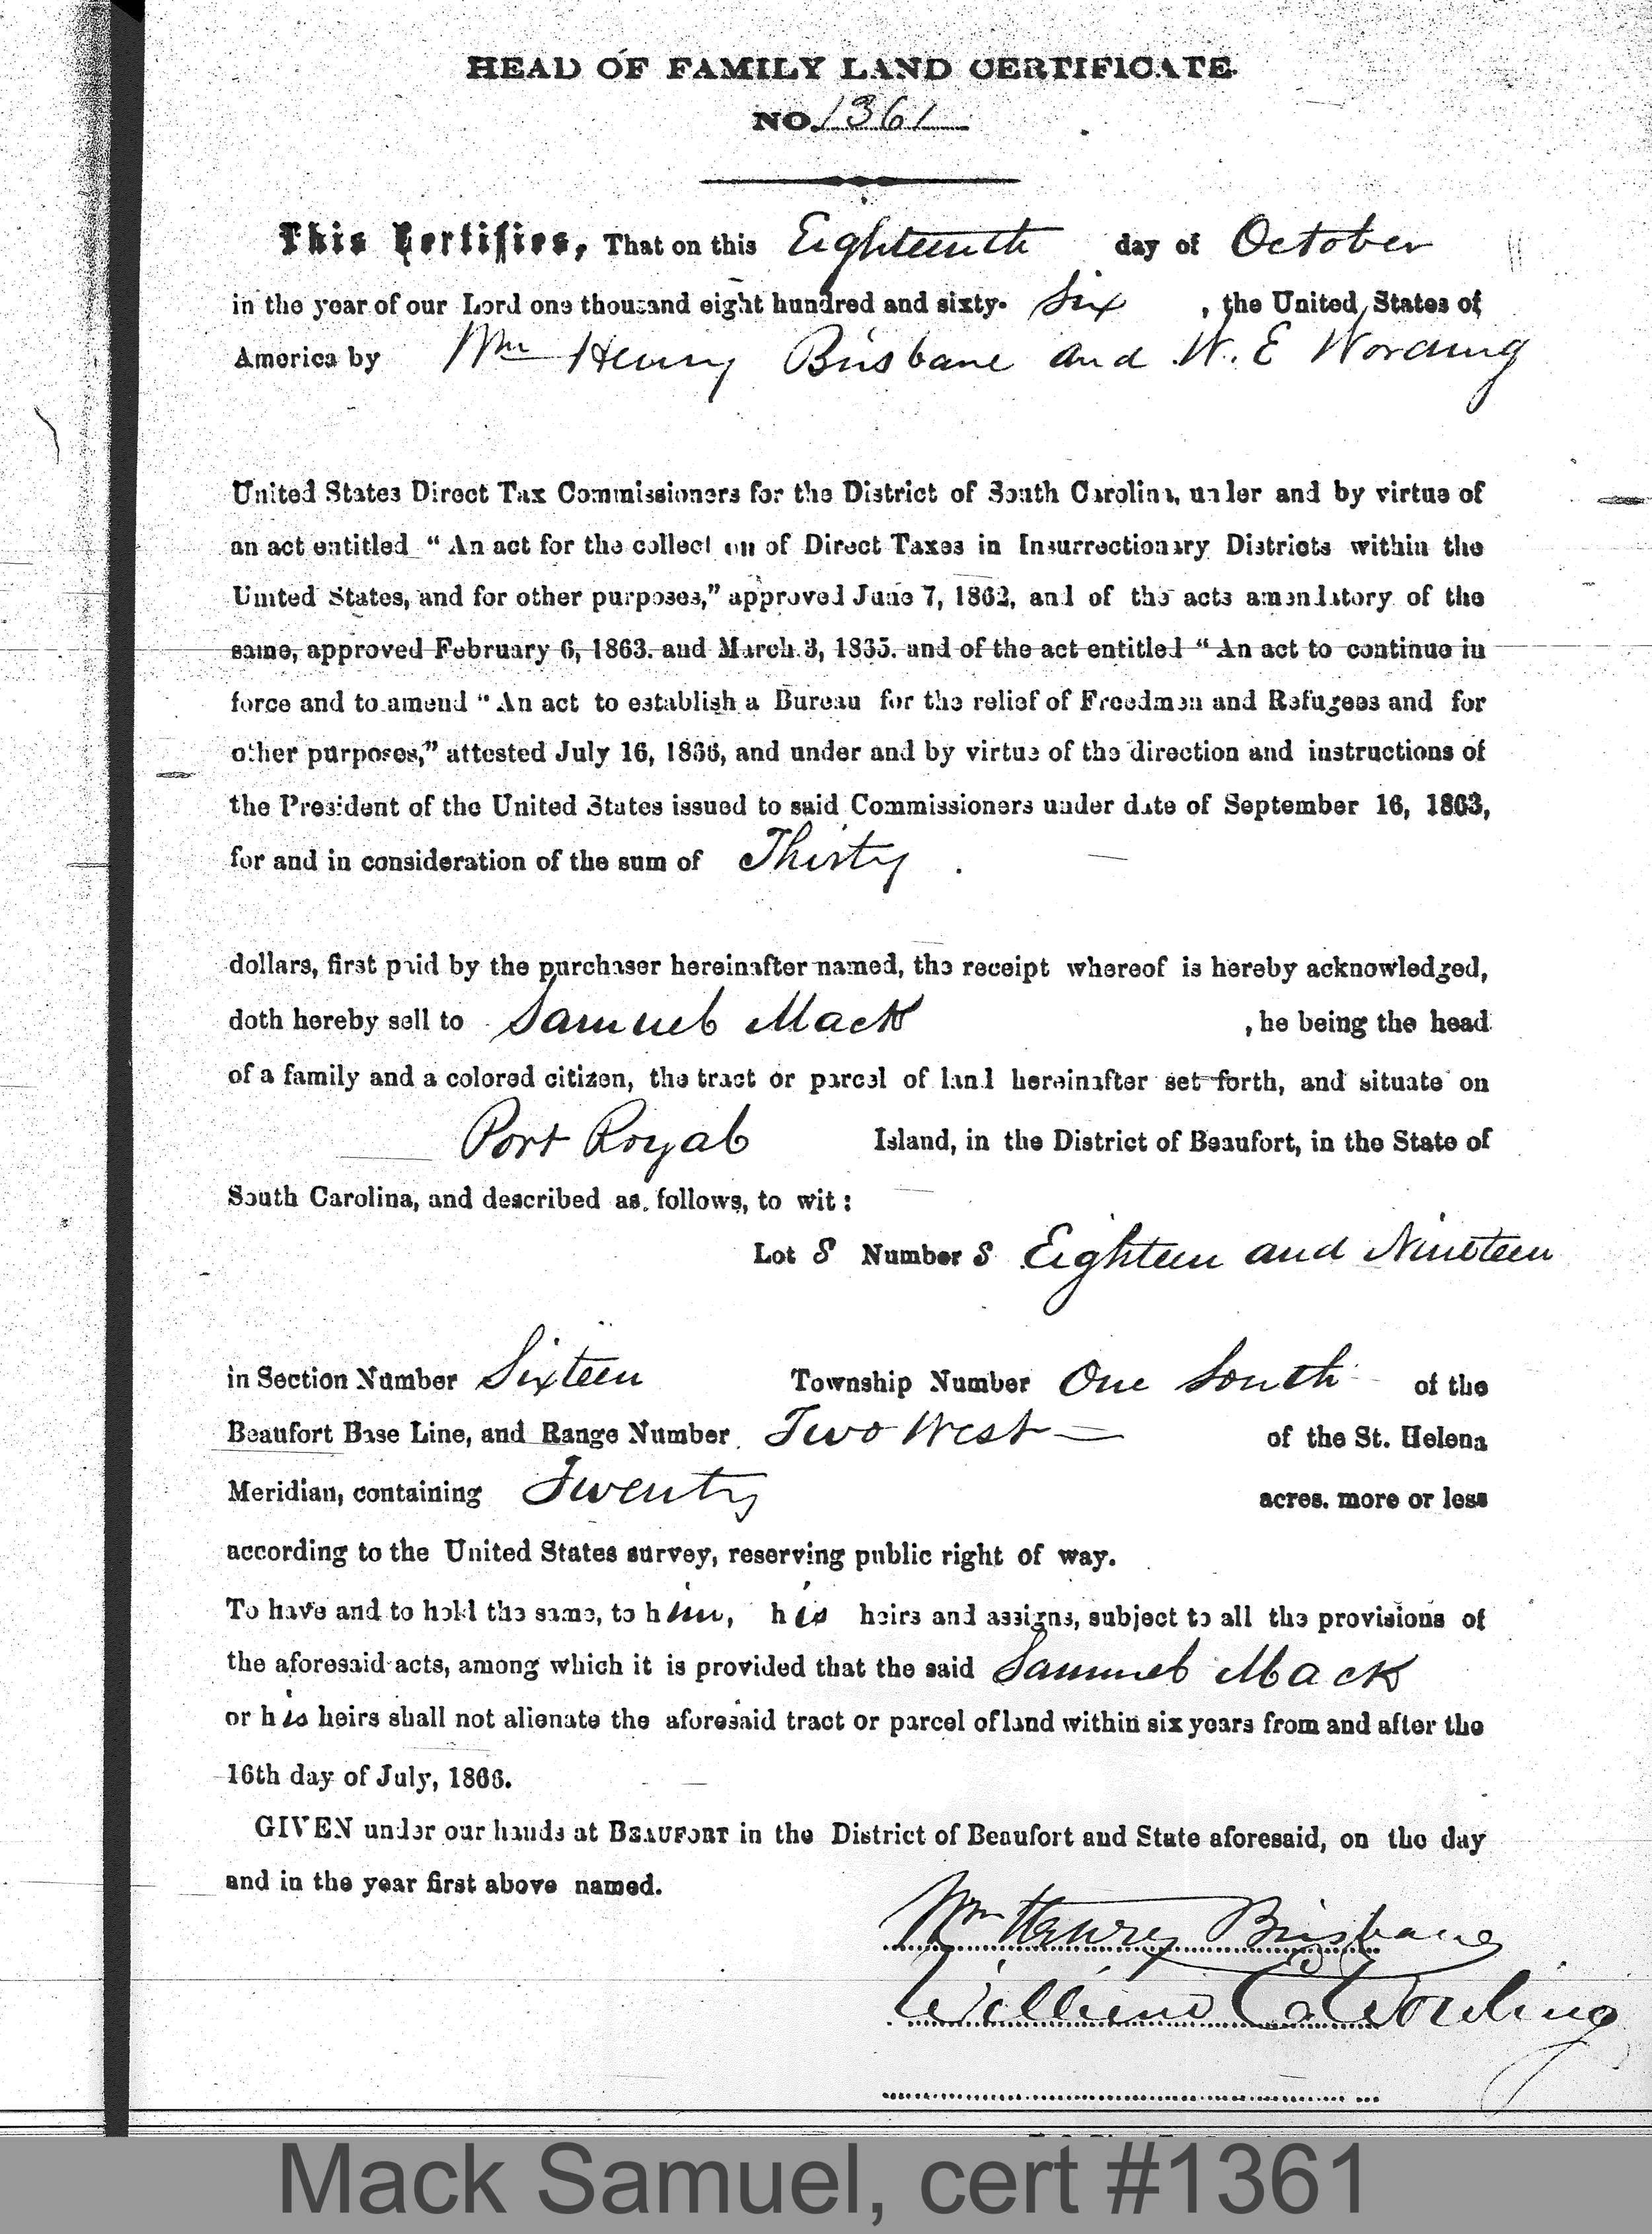 HEAD OF FAMILY LAND CERTIFICATE
NO. 1361
This Certifies, That on this Eighteenth day of October
in the year of our Lord one thousand eight hundred and sixty- Six , the United States of
America by Wm Henry Brisbane and W. E Wording
United States Direct Tax Commissioners for the District of South Carolina, under and by virtue of
an act entitled "An act for the collection of Direct Taxes in Insurrectionary Districts within the
United States, and for other purposes," approved June 7, 1862, and of the acts amendatory of the
same, approved February 6, 1863. and March 3, 1865. and of the act entitled "An act to continue in
force and to amend "An act to establish a Bureau for the relief of Freedmen and Refugees and for
other purposes," attested July 16, 1866, and under and by virtue of the direction and instructions of
the President of the United States issued to said Commissioners under date of September 16, 1863,
for and in consideration of the sum of Thirty
dollars, first paid by the purchaser hereinafter named, the receipt whereof is hereby acknowledged,
doth hereby sell to Samuel Mack , he being the head
of a family and a colored citizen, the tract or parcel of land hereinafter set forth, and situate on
Port Royal Island, in the District of Beaufort, in the State of
South Carolina, and described as follows, to wit:
Lot S Number S Eighteen and Nineteen
in Section Number Sixteen Township Number One South of the
Beaufort Base Line, and Range Number Two West of the St. Helena
Meridian, containing Twenty acres. more or less
according to the United States survey, reserving public right of way.
To have and to hold the same, to him, his heirs and assigns, subject to all the provisions of
the aforesaid acts, among which it is provided that the said Samuel Mack
or his heirs shall not alienate the aforesaid tract or parcel of land within six years from and after the
16th day of July, 1866.
GIVEN under our hands at BEAUFORT in the District of Beaufort and State aforesaid, on the day
and in the year first above named.
Wm Henry Brisbane
William E Wording
Mack Samuel, cert #1361